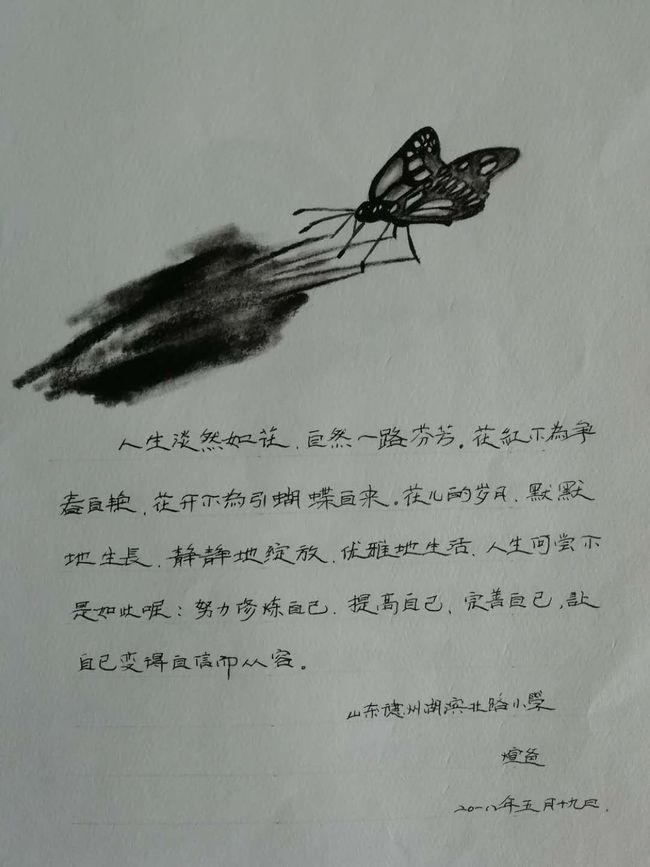 人生淡然如花，自然一路芬芳。花紅不為争
春自艳，花开不為引蝴蝶自来。花儿的岁月，默默
地生長，静静地绽放，优雅地生活，人生何尝不
是如此呢：努力修炼自己，提高自己，完善自己，讓
自己变得自信而从容。
山东德州湖滨北路小學
年五月十九日.